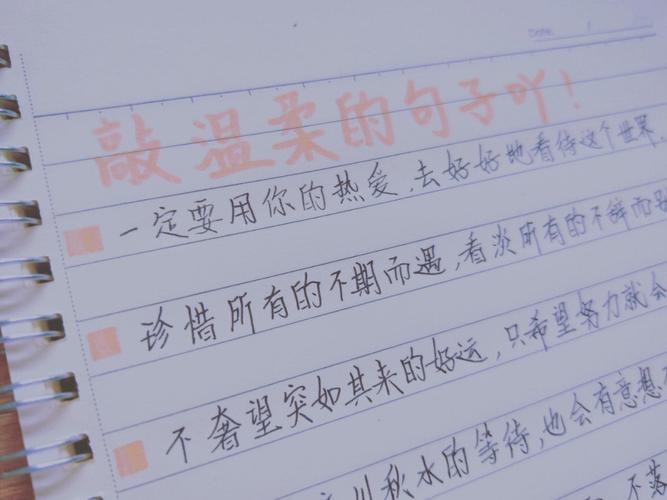 Date
敲温柔的句子吖!
一定要用你的热爱,去好好地看待这个世界
珍惜所有的不期而遇,看淡所有的不辞而别
不奢望突如其来的好运,只希望努力就会
川秋水的等待,也会有意想
不落